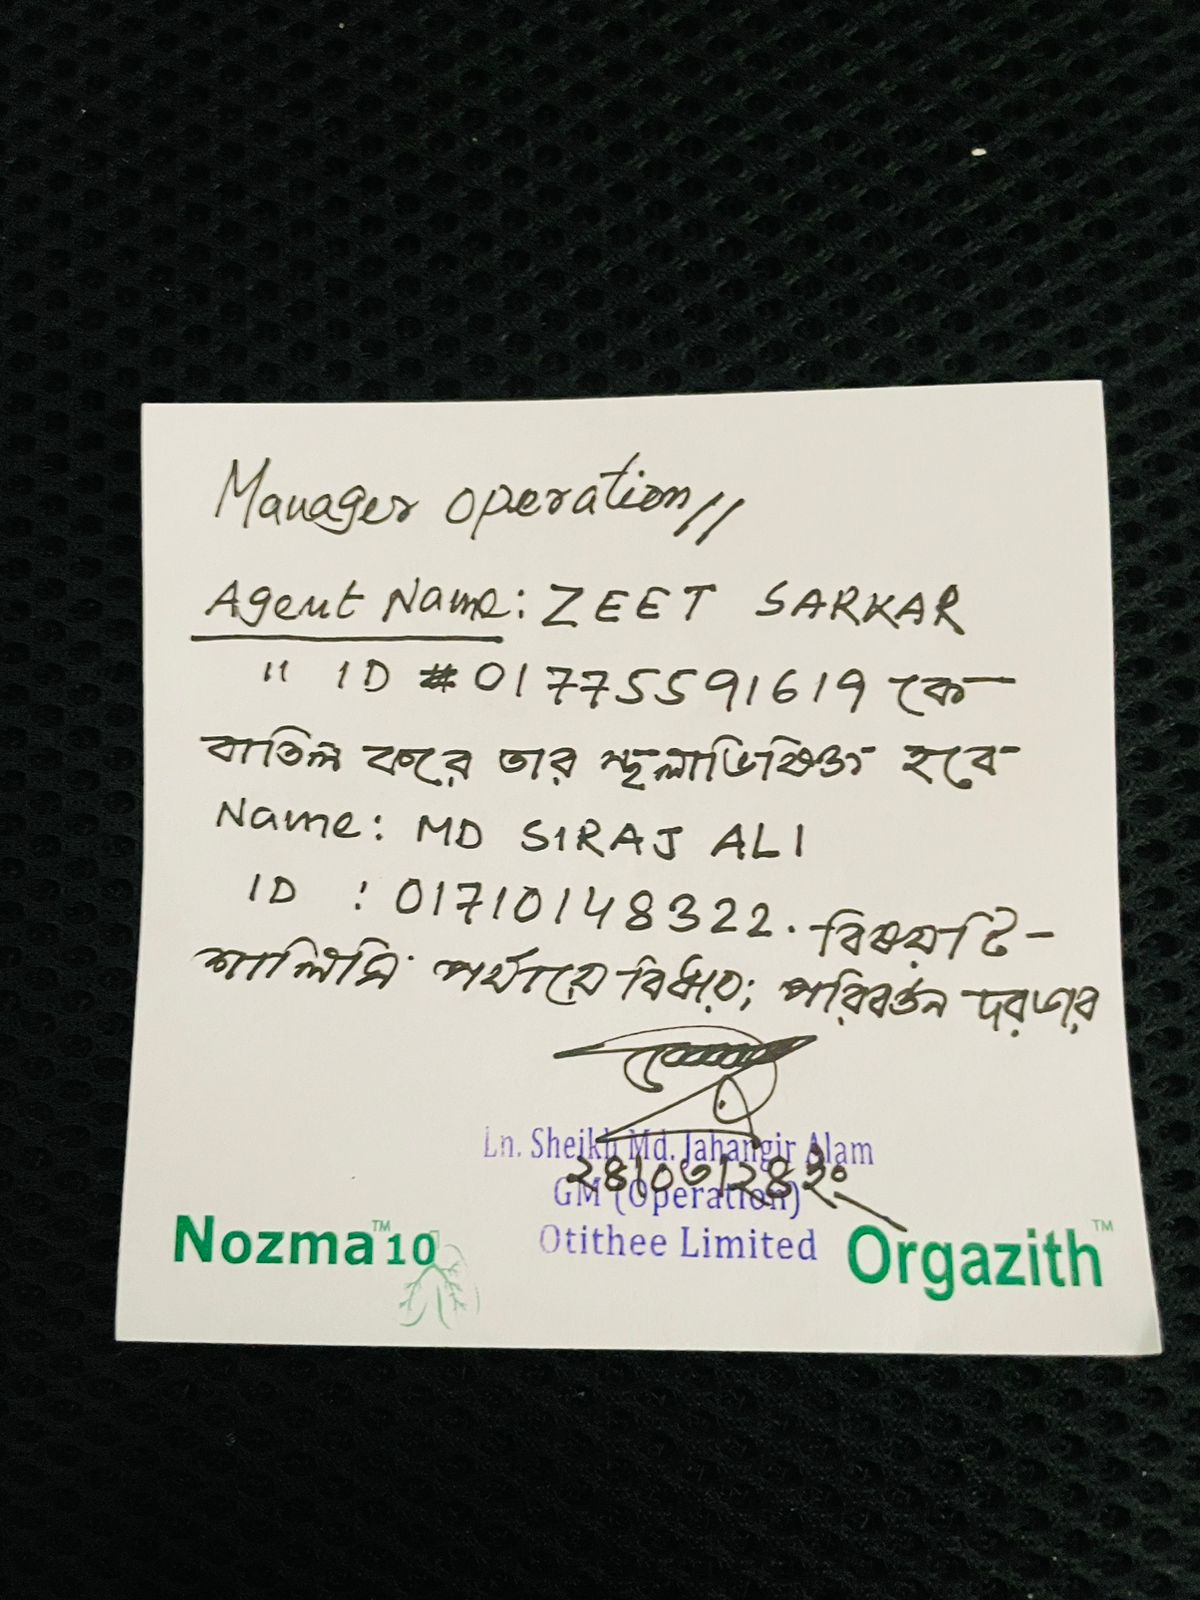 Manager operation//
Agent Name: ZEET SARKAR
" ID # 01775591619 কে
বাতিল করে তার স্থলাভিষিক্ত হবে
Name: MD SIRAJ ALI
ID : 01710148322. বিষয়টি-
পর্যায়ে বিধায়; পরিবর্তন দরকার
Ln. Sheikh Md. Jahangir Alam
GM (Operation)
Otithee Limited
Nozma™10
Orgazith™